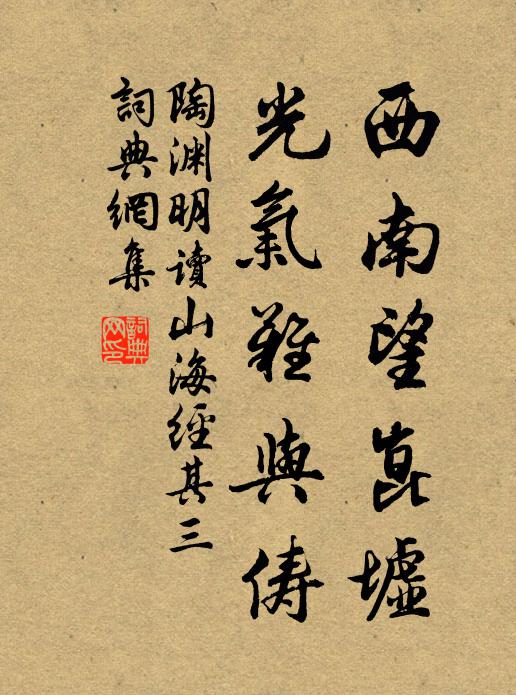 西南望崑墟
光氣難與儔
陶淵明讀山海經其三
詞典網集
詞典
网印